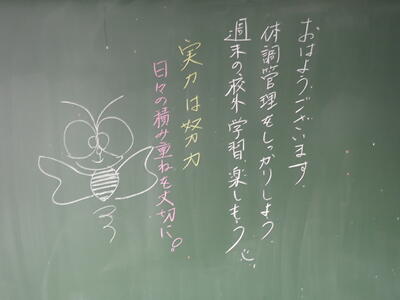 おはようございます。
体調管理をしっかりしよう。
週末の校外学習、楽しもう
実力は努力
日々の積み重ねを大切に!